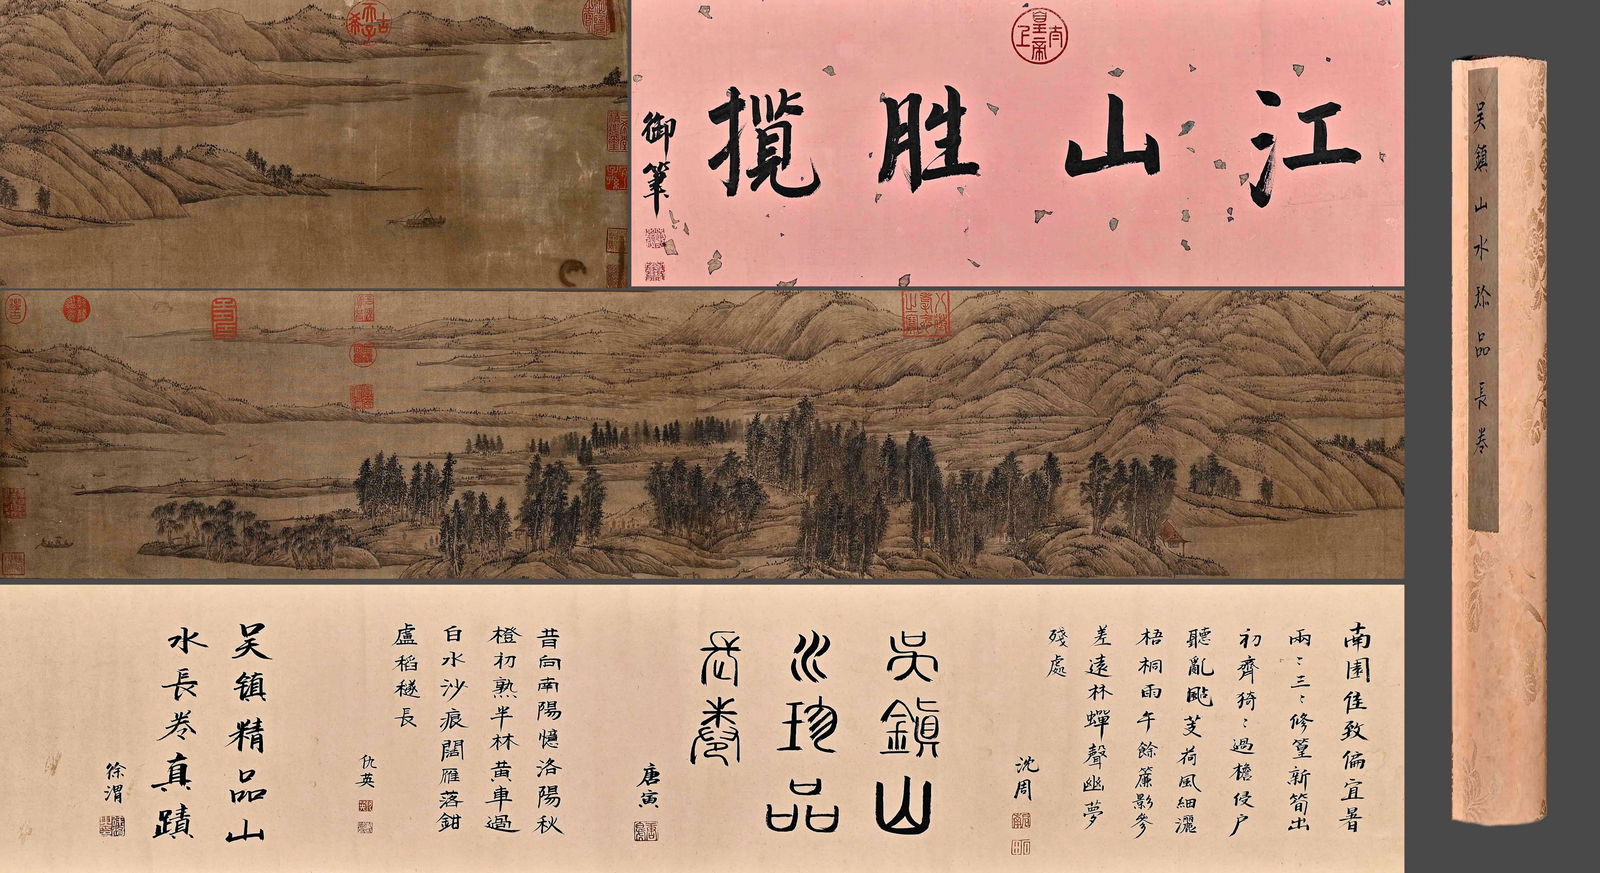 江山胜揽
御筆
吴鎮山水珍品長卷
南圃佳致偏宜暑
雨〻三〻修篁新筍出
初齊猗〻過檐侵户
聽亂颭芰荷風細灑
梧桐雨午餘簾影參
差遠林蟬聲幽夢
殘處
沈周
吳鎮山
水珍品
長卷
唐寅
昔向南陽憶洛陽秋
橙初熟半林黄車過
白水沙痕闊雁落鉗
盧稻穟長
仇英
吴镇精品山
水長卷真蹟
徐渭